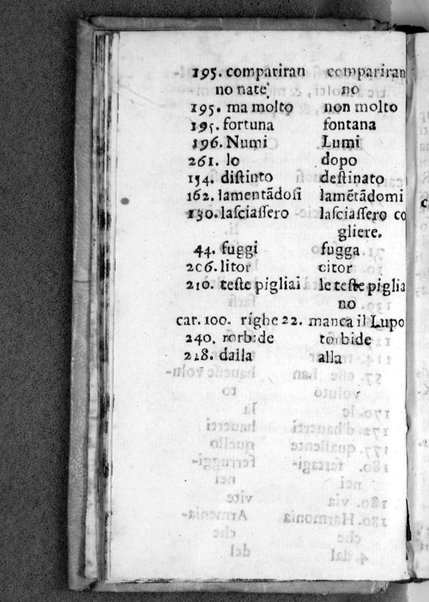 195. compariran compariran
no nate no
195. ma molto non molto
195. fortuna fontana
196. Numi Lumi
261. lo dopo
154. diſtinto deſtinato
162. lamentādoſi lamētādomi
130. laſciaſſero laſciaſſero co
gliere.
44. fuggi fugga
206. litor citor
210. teſte pigliai le teſte piglia
no
car. 100. righe 22. manca il Lupo
240. rorbide torbide
228. dalla alla